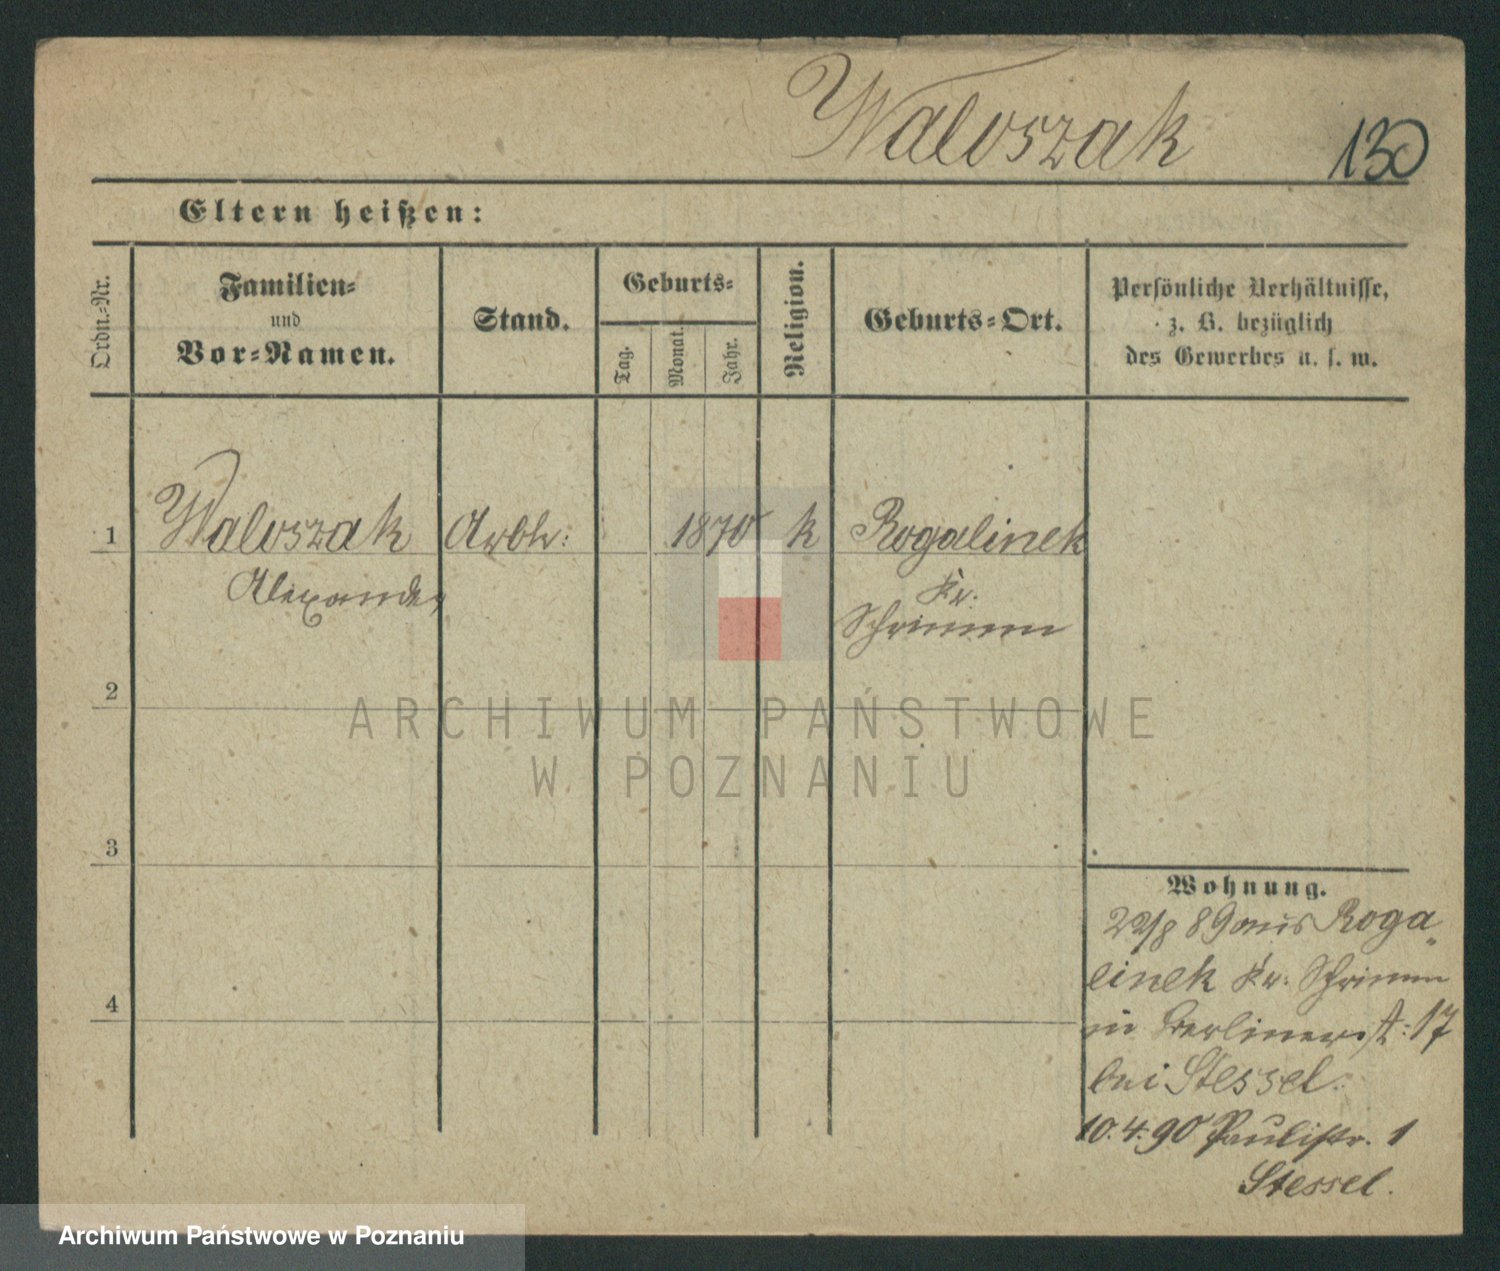 Waloszak 130
Eltern heißen:
Ordn.-Nr.
Familien-
und
Vor-Namen.
Stand.
Geburts-
Tag.
Monat.
Jahr.
Religion.
Geburts-Ort.
Persönliche Verhältnisse,
z. B. bezüglich
des Gewerbes u. s. w.
1 Waloszak Arbtr: 1870 k Rogalinek
Alexander
Kr.
Schrimm
2
3
4
Wohnung.
22/8 89 aus Roga„
linek Kr. Schrimm
in Berlinerst: 17
bei Stessel.
10.4.90 Paulistr. 1
Stessel.
ARCHIWUM PAŃSTWOWE
W POZNANIU
Archiwum Państwowe w Poznaniu